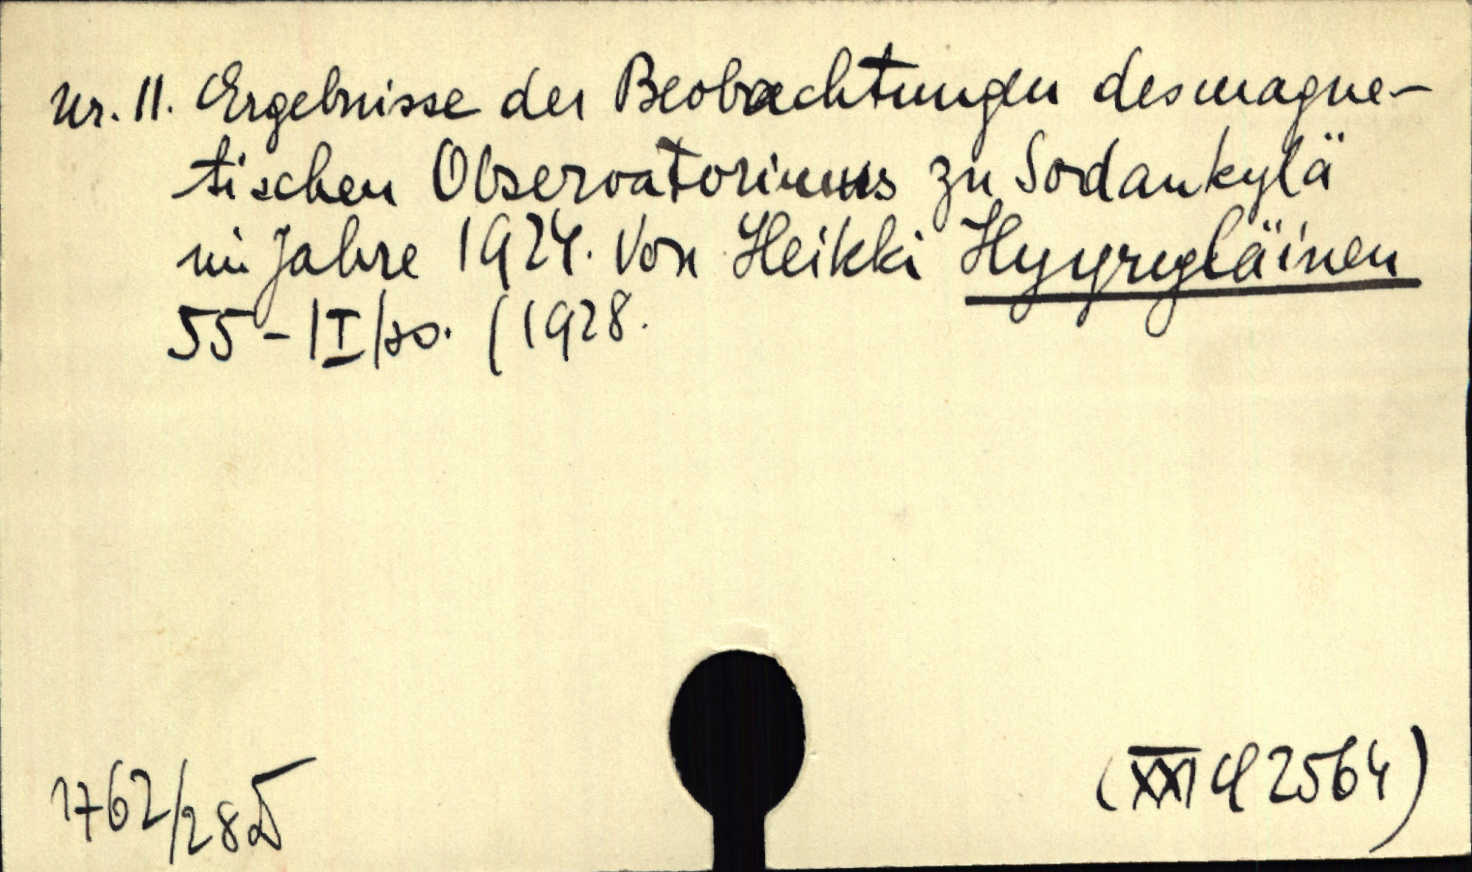 Nr. 11. Ergebnisse der Beobachtungen des magne-
tischen Observatoriums zu Sodankylä
im Jahre 1924. Von Heikki Hyyryläinen
55-|I|so. (1928.
1762/28 D
(XXI Cf 2564)